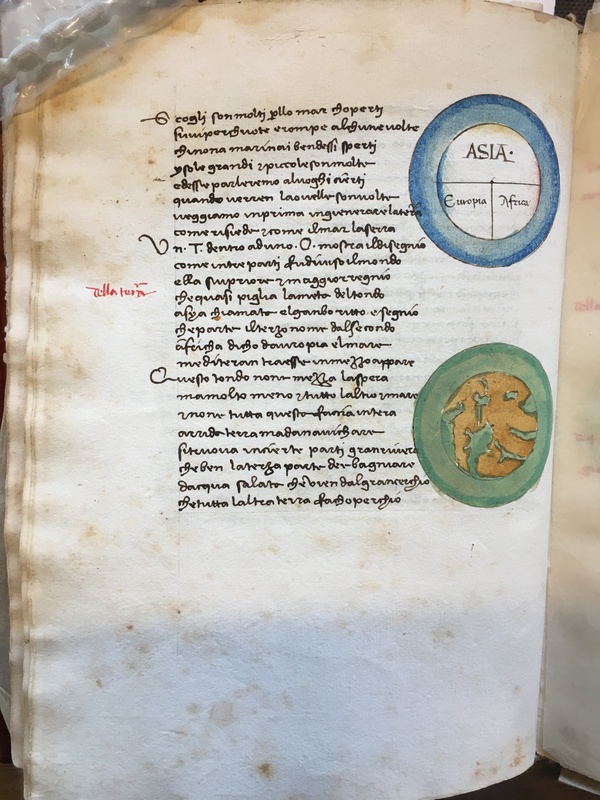 Scogli son molti p̄llo mar choperti
suvi perchuote e rompe alchune volte
chi nona marinai bendessi sperti
ysole grandi ⁊ piccole son molte
edesse parleremo aluoghi cierti
quando verren laovelle son volte
veggiamo inprima ingienerare laterra
come risiede ⁊ come il mar laserra
Vn .T. dentro aduno .O. mostra il disegnio
come intre parti fu diviso il mondo
ella superiore ⁊ maggior regnio
che quasi piglia lameta del tondo
asya chiamata el ganbo ritto e segnio
che parte il terzo nome dal secondo
africha dicho da uropia el mare
mediteran traesse in mezzo appare
Questo tondo none mezza laspera
ma molto meno ⁊ tutto laltro i mare
⁊ none tutta questa faccia intera
arrida terra madanavichare
si truova incierte parti gran rivera
che ben laterza parte de bagniare
dacqua salata che vien dal gran cerchio
che tutta laltra terra fa choperchio
della terra
ASIA·
Europia Africa